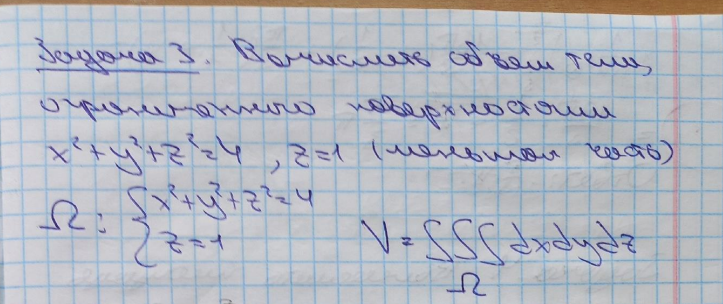 Задача 3. Вычислить объем тела,
ограниченного поверхностями
x²+y²+z²=4, z=1 (меньшая часть)
Ω: { x²+y²+z²=4
z=1 V=∭ dxdydz
Ω